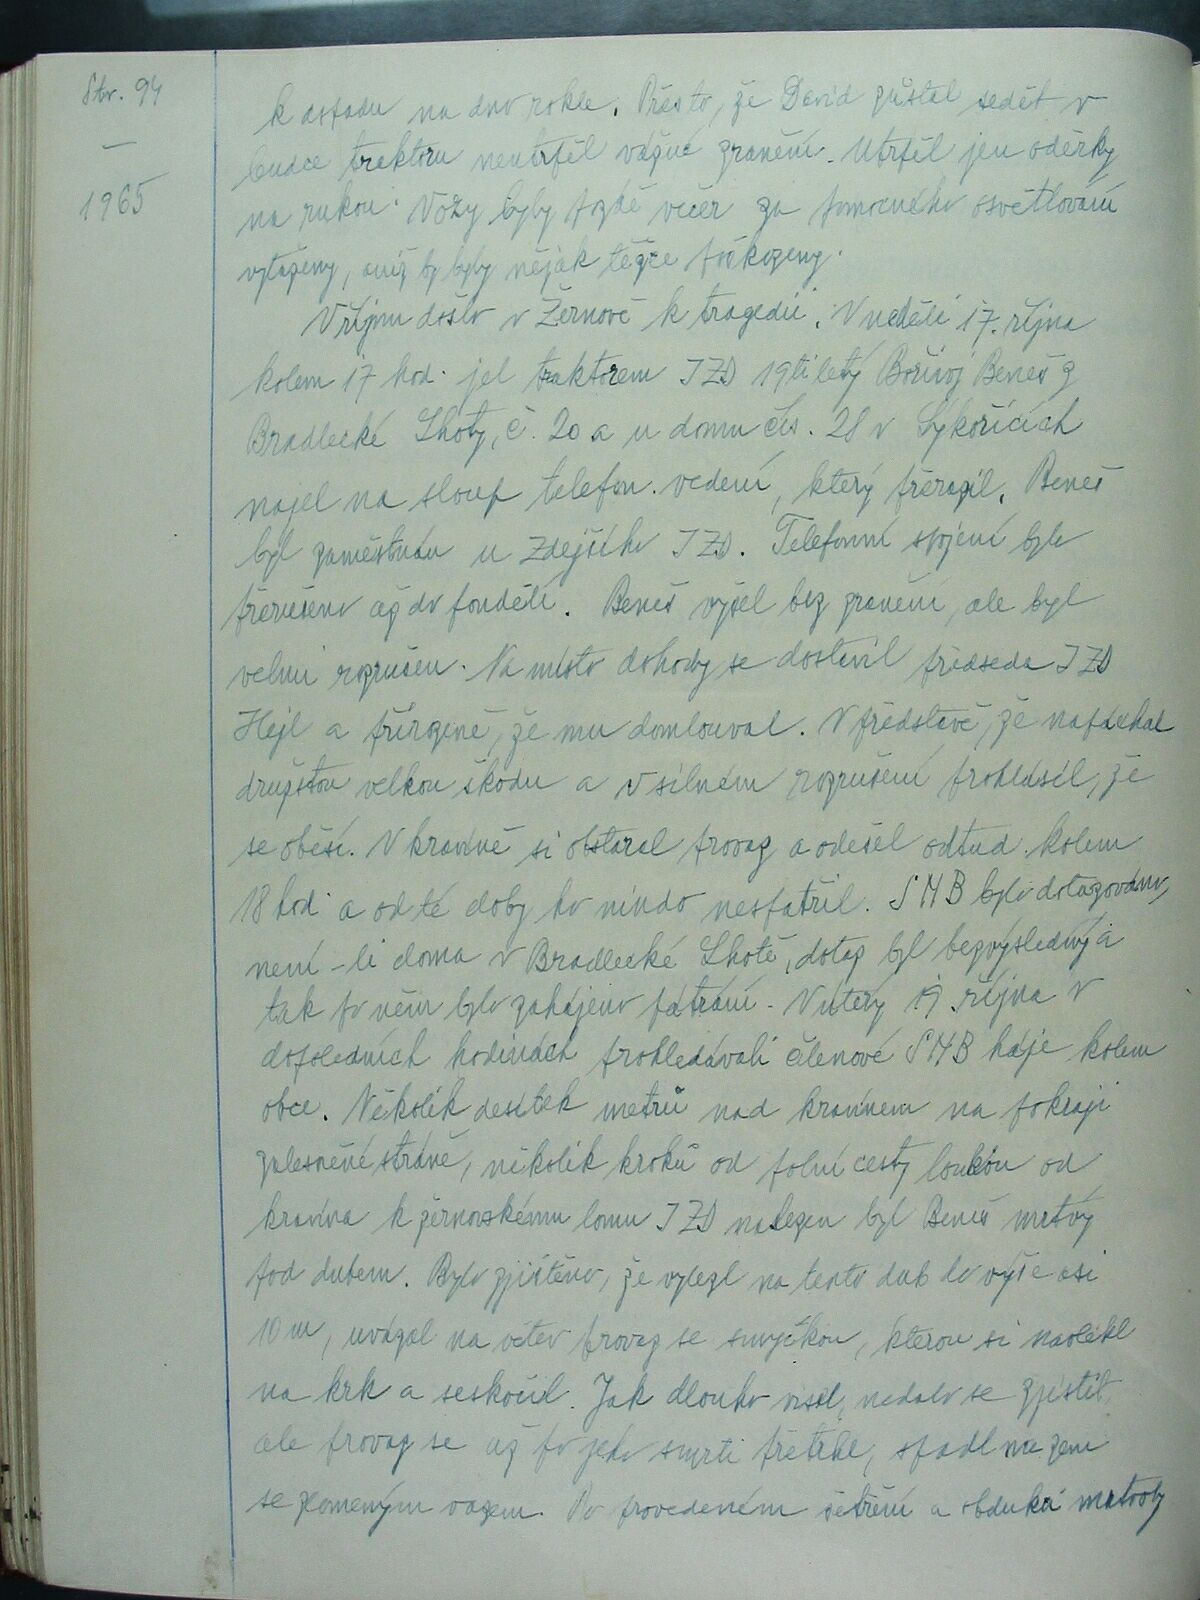 Str. 94
—
1965
k dopadu na dno rokle. Přesto, že David zůstal sedět v
budce traktoru neutrpěl vážné zranění. Utrpěl jen oděrky
na rukou. Vozy byly pozdě večer za pomocného osvětlování
vytaženy, aniž by byly nějak těžce poškozeny.
V říjnu došlo v Žernově k tragedii. V neděli 17. října
kolem 17 hod. jel traktorem JZD 19ti letý Bořivoj Beneš z
Bradlecké Lhoty, č. 20 a u domu čís. 28 v Sýkořicích
najel na sloup telefon. vedení, který přerazil. Beneš
byl zaměstnán u zdejšího JZD. Telefonní spojení bylo
přerušeno až do pondělí. Beneš vyšel bez zranění, ale byl
velmi rozrušen. Na místo dohody se dostavil předseda JZD
Hejl a přirozeně, že mu domlouval. V představě, že napáchal
družstvu velkou škodu a v silném rozrušení prohlásil, že
se oběsí. V kravíně si obstaral provaz a odešel odtud kolem
18 hod. a od té doby ho nikdo nespatřil. SNB bylo dotazováno,
není-li doma v Bradlecké Lhotě, dotaz byl bezvýsledný a
tak po něm bylo zahájeno pátrání. V úterý 19 října v
dopoledních hodinách prohledávali členové SNB háje kolem
obce. Několik desítek metrů nad kravínem na pokraji
zalesněné stráně, několik kroků od polní cesty loukou od
kravína k žernovskému lomu JZD nalezen byl Beneš mrtvý
pod dubem. Bylo zjištěno, že vylezl na tento dub do výše asi
10 m, uvázal na větev provaz se smyčkou, kterou si navlékl
na krk a seskočil. Jak dlouho visel, nedalo se zjistit,
ale provaz se až po jeho smrti přetrhl, spadl na zem
se zlomeným vazem. Po provedeném šetření a obdukci mrtvoly